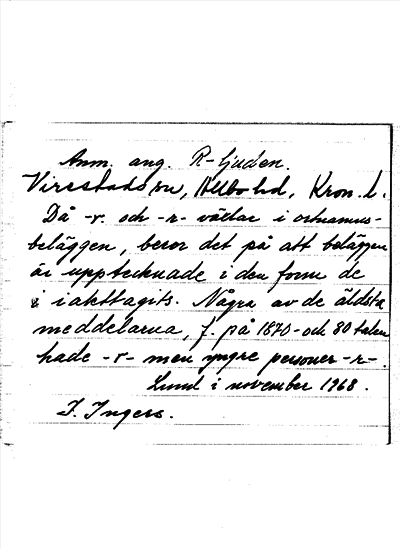 Anm. ang. R-ljuden.
Virestads sn, Allbo hd, Kron. l.
Då -r- och -r- växlar i ortnamns-
beläggen, beror det på att beläggen
är upptecknade i den form de
iakttagits. Några av de äldsta
meddelarna, f. på 1870- och 80 talen
hade -r- men yngre personer -r-.
Lund i november 1968.
I. Ingers.